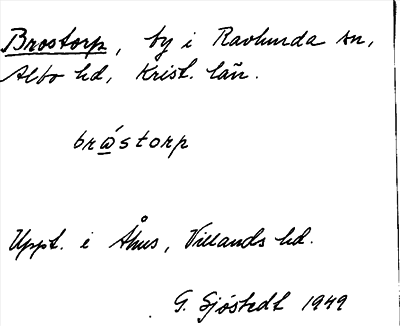 Brostorp, by i Ravlunda sn,
Albo hd, Krist. län.
brώ̲storp
Uppt. i Åhus, Villands hd.
G. Sjöstedt 1949